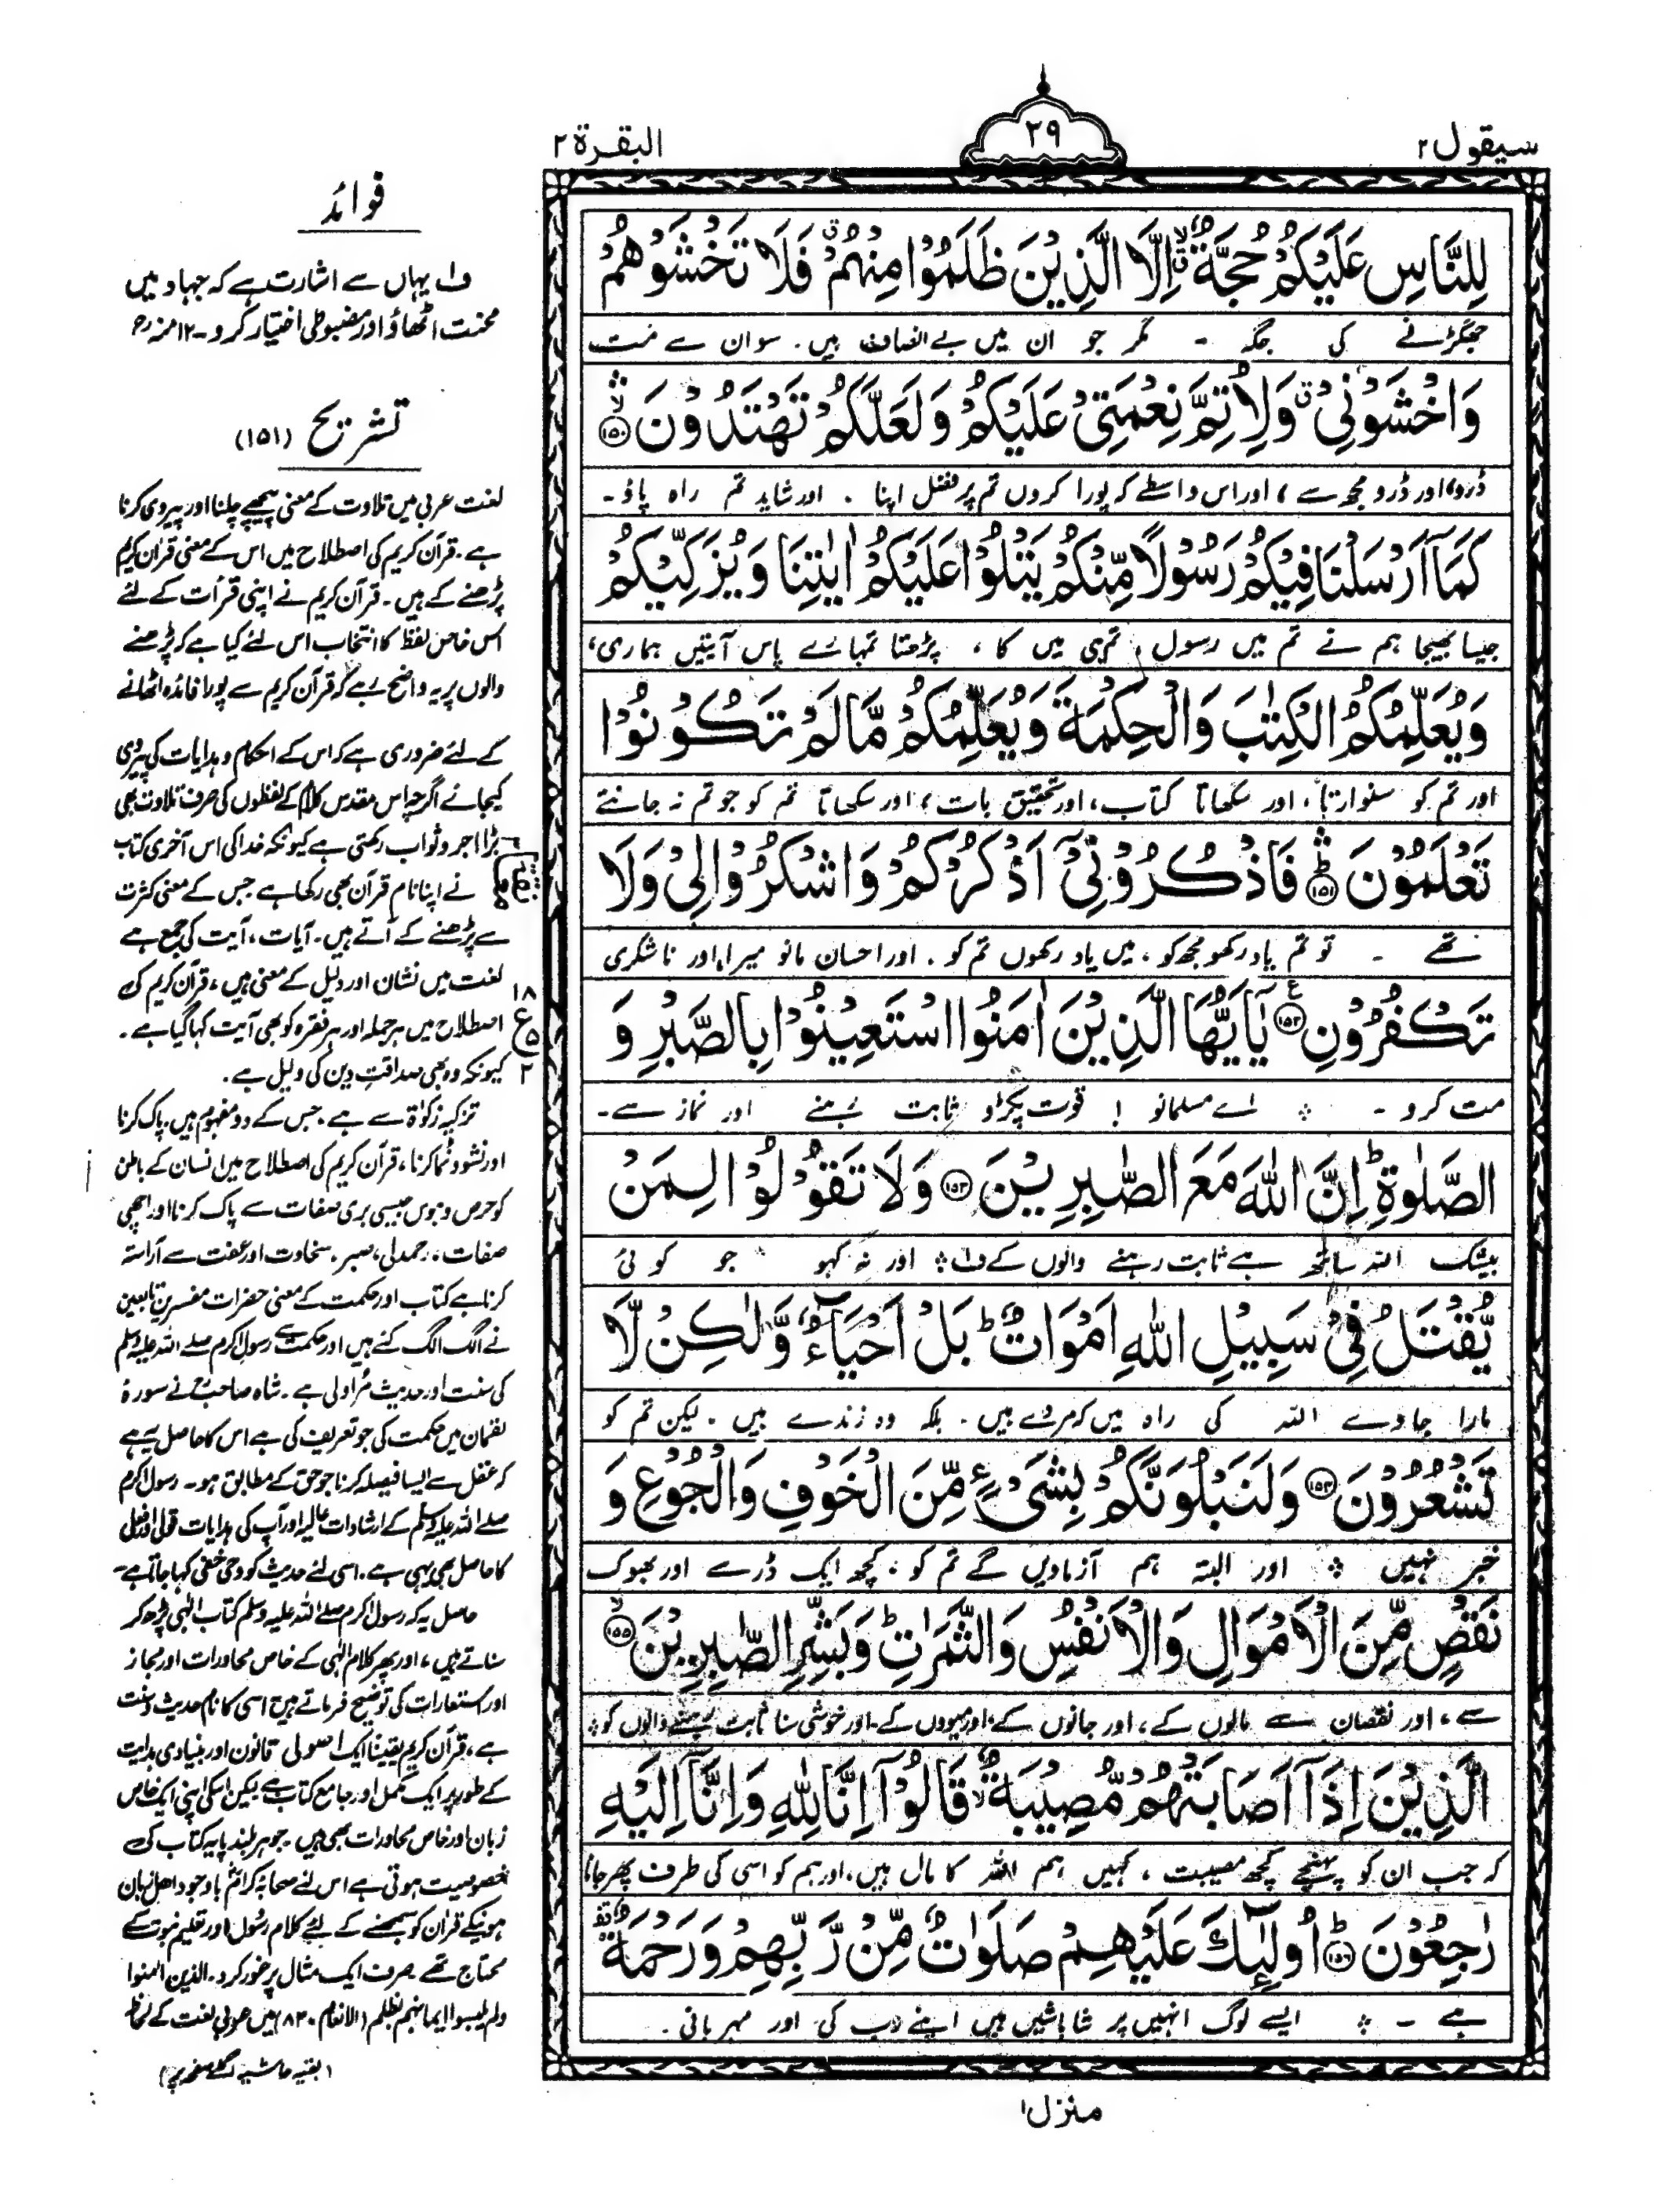 سیقول ۲
۲۹
البقرة ۲
لِلنَّاسِ عَلَیْكُمْ حُجَّةٌ ۙۗ اِلَّا الَّذِیْنَ ظَلَمُوْا مِنْهُمْ ۗ فَلَا تَخْشَوْهُمْ
جھگڑنے کی جگہ ۔ مگر جو ان میں بے انصاف ہیں۔ سو ان سے مت
وَاخْشَوْنِیْ ۗ وَلِاُتِمَّ نِعْمَتِیْ عَلَیْكُمْ وَلَعَلَّكُمْ تَهْتَدُوْنَ ۙ۝۱۵۰
ڈرو، اور ڈرو مجھ سے، اور اس واسطے کہ پورا کروں تم پر فضل اپنا ۔ اور شاید تم راہ پاؤ۔
كَمَاۤ اَرْسَلْنَا فِیْكُمْ رَسُوْلًا مِّنْكُمْ یَتْلُوْا عَلَیْكُمْ اٰیٰتِنَا وَیُزَكِّیْكُمْ
جیسا بھیجا ہم نے تم میں رسول، تمہی میں کا، پڑھتا تمہارے پاس آیتیں ہماری،
وَیُعَلِّمُكُمُ الْكِتٰبَ وَالْحِكْمَةَ وَیُعَلِّمُكُمْ مَّا لَمْ تَكُوْنُوْا
اور تم کو سنوارتا، اور سکھاتا کتاب، اور تحقیق بات، اور سکھاتا تم کو جو تم نہ جانتے
تَعْلَمُوْنَ ؕ۝۱۵۱ فَاذْكُرُوْنِیْۤ اَذْكُرْكُمْ وَاشْكُرُوْا لِیْ وَلَا
تھے ۔ تو تم یاد رکھو مجھ کو، میں یاد رکھوں تم کو۔ اور احسان مانو میرا، اور ناشکری
تَكْفُرُوْنِ ۝۱۵۲ یٰۤاَیُّهَا الَّذِیْنَ اٰمَنُوا اسْتَعِیْنُوْا بِالصَّبْرِ وَ
مت کرو ۔ ؞ اے مسلمانو ! قوت پکڑو ثابت رہنے اور نماز سے۔
الصَّلٰوةِ ؕ اِنَّ اللّٰهَ مَعَ الصّٰبِرِیْنَ ۝۱۵۳ وَلَا تَقُوْلُوْا لِمَنْ
بیشک اللہ ساتھ ہے ثابت رہنے والوں کے ف۱ ؞ اور نہ کہو جو کوئی
یُّقْتَلُ فِیْ سَبِیْلِ اللّٰهِ اَمْوَاتٌ ؕ بَلْ اَحْیَآءٌ وَّلٰكِنْ لَّا
مارا جاوے اللہ کی راہ میں کہ مردے ہیں۔ بلکہ وہ زندے ہیں ۔ لیکن تم کو
تَشْعُرُوْنَ ۝۱۵۴ وَلَنَبْلُوَنَّكُمْ بِشَیْءٍ مِّنَ الْخَوْفِ وَالْجُوْعِ وَ
خبر نہیں ؞ اور البتہ ہم آزماویں گے تم کو، کچھ ایک ڈر سے اور بھوک
نَقْصٍ مِّنَ الْاَمْوَالِ وَالْاَنْفُسِ وَالثَّمَرٰتِ ؕ وَبَشِّرِ الصّٰبِرِیْنَ ۙ۝۱۵۵
سے، اور نقصان سے مالوں کے، اور جانوں کے، اور میووں کے۔ اور خوشی سنا ثابت رہنے والوں کو ؞
الَّذِیْنَ اِذَاۤ اَصَابَتْهُمْ مُّصِیْبَةٌ ۙ قَالُوْۤا اِنَّا لِلّٰهِ وَاِنَّاۤ اِلَیْهِ
کہ جب ان کو پہنچے کچھ مصیبت، کہیں ہم اللہ کا مال ہیں، اور ہم کو اسی کی طرف پھر جانا
رٰجِعُوْنَ ؕ۝۱۵۶ اُولٰٓىِٕكَ عَلَیْهِمْ صَلَوٰتٌ مِّنْ رَّبِّهِمْ وَرَحْمَةٌ ۫
ہے ۔ ؞ ایسے لوگ انہیں پر شاباشیں ہیں اپنے رب کی اور مہربانی۔
منزل ۱
فوائد
ف۱ یہاں سے اشارت ہے کہ جہاد میں
محنت اٹھاؤ اور مضبوطی اختیار کرو ۔ ۱۲ منہ رح
تشریح (۱۵۱)
لغت عربی میں تلاوت کے معنی پیچھے چلنا اور پیروی کرنا
ہے۔ قرآن کریم کی اصطلاح میں اس کے معنی قرآن کریم
پڑھنے کے ہیں۔ قرآن کریم نے اپنی قرأت کے لئے
اس خاص لفظ کا انتخاب اس لئے کیا ہے کہ پڑھنے
والوں پر یہ واضح رہے کہ قرآن کریم سے پورا فائدہ اٹھانے
کے لئے ضروری ہے کہ اس کے احکام و ہدایات کی پیروی
کیجائے اگرچہ اس مقدس کلام کے لفظوں کی صرف تلاوت بھی
بڑا اجر و ثواب رکھتی ہے کیونکہ خدا کی اس آخری کتاب
نے اپنا نام قرآن بھی رکھا ہے جس کے معنی کثرت
سے پڑھنے کے آتے ہیں۔ آیات، آیت کی جمع ہے
لغت میں نشان اور دلیل کے معنی ہیں، قرآن کریم کی
اصطلاح میں ہر جملہ اور ہر فقرہ کو بھی آیت کہا گیا ہے۔
کیونکہ وہ بھی صداقتِ دین کی دلیل ہے۔
۱۸
ع
۵
۲
تزکیہ زکوٰۃ سے ہے۔ جس کے دو مفہوم ہیں، پاک کرنا
اور نشوونما کرنا، قرآن کریم کی اصطلاح میں انسان کے باطن
کو حرص و ہوس جیسی بری صفات سے پاک کرنا اور اچھی
صفات، رحمدلی، صبر، سخاوت اور عفت سے آراستہ
کرنا ہے کتاب اور حکمت کے معنی حضرات مفسرین تابعین
نے الگ الگ کئے ہیں اور حکمت سے رسول اکرم صلے اللہ علیہ وسلم
کی سنت اور حدیث مُراد لی ہے۔ شاہ صاحبؒ نے سورۂ
لقمان میں حکمت کی جو تعریف کی ہے اس کا حاصل یہ ہے
کہ عقل سے ایسا فیصلہ کرنا جو حق کے مطابق ہو۔ رسول اکرم
صلے اللہ علیہ وسلم کے ارشادات عالیہ اور آپ کی ہدایات قولی اور فعلی
کا حاصل بھی یہی ہے۔ اسی لئے حدیث کو وحی خفی کہا جاتا ہے۔
حاصل یہ کہ رسول اکرم صلے اللہ علیہ وسلم کتاب الٰہی پڑھ کر
سناتے ہیں، اور پھر کلام الٰہی کے خاص محاورات اور مجاز
اور استعارات کی توضیح فرماتے ہیں اسی کا نام حدیث و سنت
ہے، قرآن کریم یقیناً ایک اصولی قانون اور بنیادی ہدایت
کے طور پر ایک مکمل اور جامع کتاب ہے لیکن اسکی اپنی ایک خاص
زبان اور خاص محاورات بھی ہیں۔ جو ہر بلند پایہ کتاب کی
خصوصیت ہوتی ہے اس لئے صحابہ کرامؓ باوجود اھل زبان
ہونیکے قرآن کو سمجھنے کے لئے کلام رسُول اور تعلیم نبوت کے
محتاج تھے صرف ایک مثال پر غور کرو۔ الذین اٰمنوا
ولم یلبسوا ایمانہم بظلم (الانعام ۸۲) میں عربی لغت کے لحاظ
(بقیہ حاشیہ اگلے صفحہ پر)